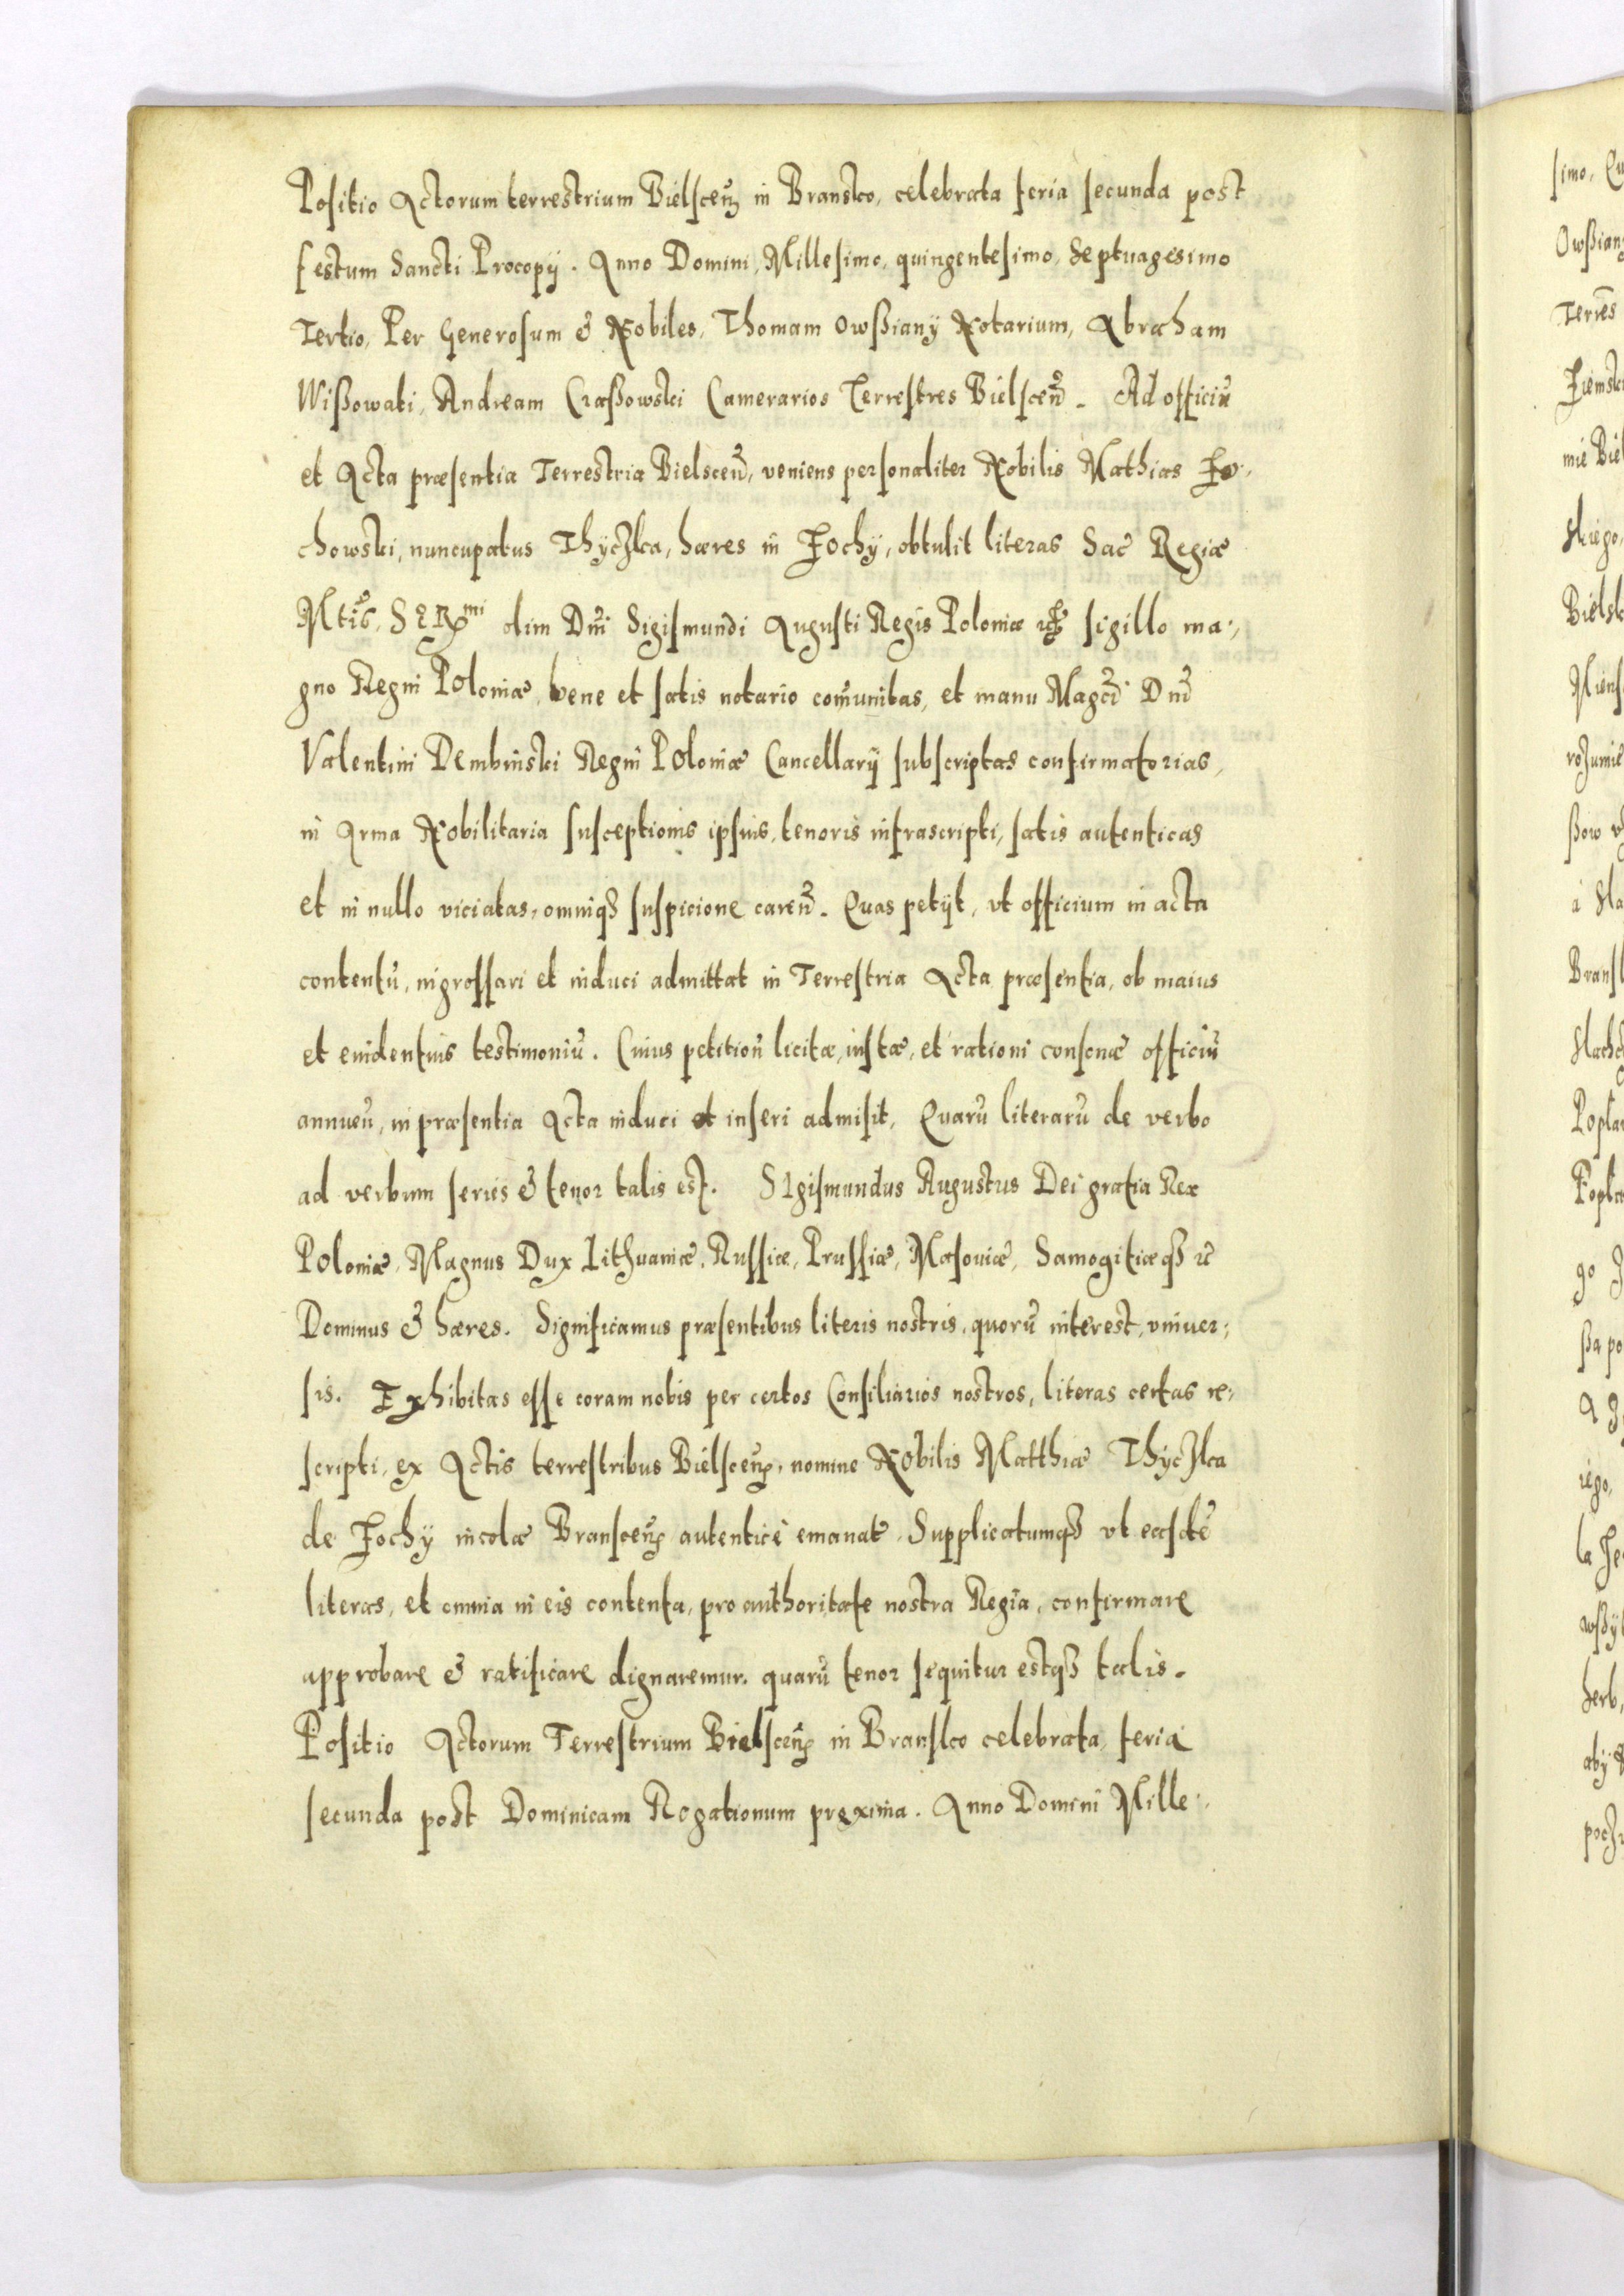 Positio Actorum terrestrium Bielsceñ in Bransko, celebrata feria secunda post
festum Sancti Procopij. Anno Domini, Millesimo, quingentesimo, Septuagesimo
Tertio, Per Generosum & Nobiles, Thomam Owßiany Notarium, Abraham
Wißowati, Andream Czaßowski Camerarios Terrestres Bielsceñ. Ad officiũ
et Acta præsentia Terrestria Bielsceñ, veniens personaliter Nobilis Mathias Fo-
chowski, nuncupatus Thyczka, hæres in Fochy, obtulit literas Sac Regiæ
Mtis, SERmi olim Dñi Sigismundi Augusti Regis Poloniæ sigillo ma-
gno Regni Poloniæ, bene et satis notario com̃unitas, et manu Magci Dñi
Valentini Dembinski Regni Poloniæ Cancellarij subscriptas confirmatorias,
in Arma Nobilitaria susceptionis ipsius, tenoris infrascripti, satis autenticas
et in nullo viciatas, omniqȝ suspicione careñ. Quas petijt, vt officium in acta
contentũ, ingrossari et induci admittat in Terrestria Acta præsentia, ob maius
et euidentius testimoniũ. Cuius petitioñ licitæ, iustæ, et rationi consonæ officiũ
annueñ, in præsentia Acta induci et inseri admisit, Quarũ literarũ de verbo
ad verbum series & tenor talis est. SIgismundus Augustus Dei gratia Rex
Poloniæ, Magnus Dux Lithuaniæ, Russiæ, Prussiæ, Masouiæ, Samogitiæqȝ &
Dominus & hæres. Significamus præsentibus literis nostris, quorũ interest, vniuer-
sis. Exhibitas esse coram nobis per certos Consiliarios nostros, literas certas re-
scripti, ex Actis terrestribus Bielsceñ, nomine Nobilis Matthiæ Thyczka
de Fochy incolæ Bransceñ autenticè emanat, Supplicatumqȝ vt easdẽ
literas, et omnia in eis contenta, pro authoritate nostra Regia, confirmare
approbare & ratificare dignaremur. quarũ tenor sequitur estqȝ talis.
Positio Actorum Terrestrium Bielsceñ in Bransko celebrata, feria
secunda post Dominicam Rogationum proxima. Anno Domini Mille-